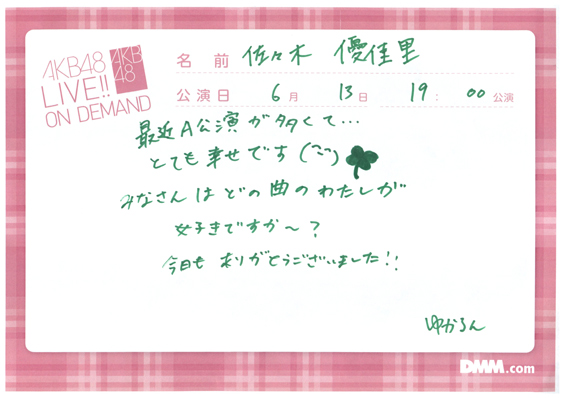 AKB48
LIVE!!
ON DEMAND
AKB
48
名前 佐々木 優佳里
公演日 6月 13日 19:00 公演
最近A公演が多くて…
とても幸せです
みなさんはどの曲のわたしが
好きですか〜?
今日もありがとうございました!!
ゆかるん
DMM.com